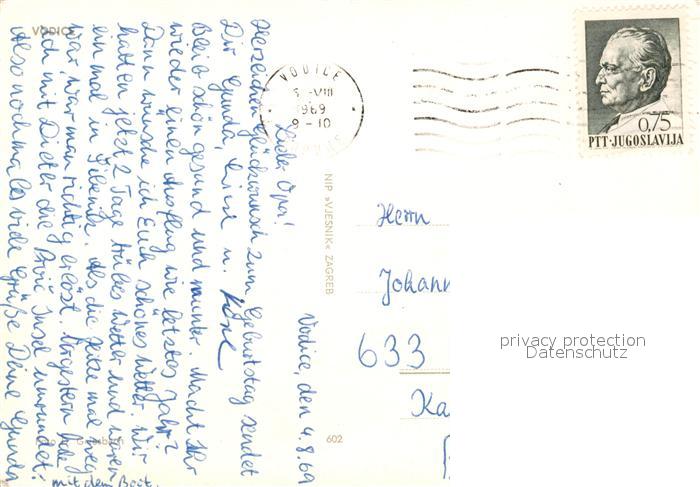 VODICE
Vodice, den 4.8.69
Lieber Opa!
Herzlichen Glückwunsch zum Geburtstag sendet
Dir Gunda, Liesl u.
Bleib schön gesund und munter. Macht Ihr
wieder einen Ausflug wie letztes Jahr?
Dann wünsche ich Euch schönes Wetter. Wir
hatten jetzt 2 Tage trübes Wetter und waren
einmal in Šibenik. Als die Hitze mal weg
war, war man richtig erlöst. Vorgestern habe
ich mit Dieter die Prvić Insel umrundet:
mit dem Boot.
Also nochmals viele Grüße Deine Gunda
NIP »VJESNIK« ZAGREB
602
VODICE
VIII
1969
10
0,75
PTT·JUGOSLAVIJA
Herrn
Johann
633
Ka
privacy protection
Datenschutz